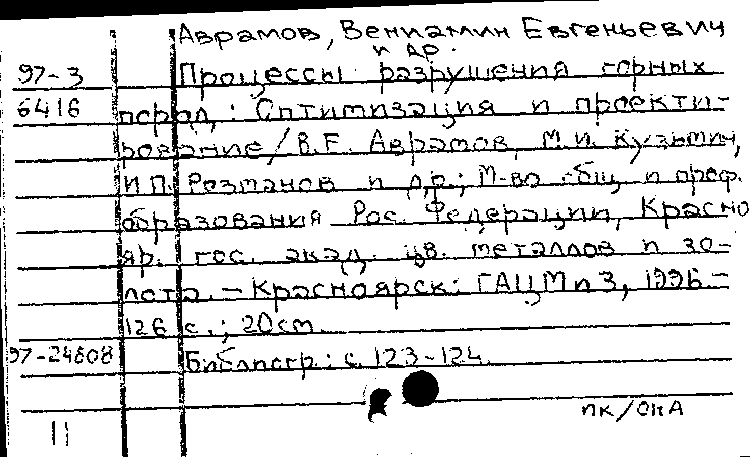 Аврамов, Вениамин Евгеньевич
и др.
97-3 Процессы разрушения горных
6416 пород : Оптимизация и проекти-
рование / В.Е. Аврамов, М.И. Кузьмин,
И.П. Розманов и др.; М-во общ. и проф.
образования Рос. Федерации, Красно
яр. гос. акад. цв. металлов и зо-
лота. - Красноярск: ГАЦМиЗ, 1996. -
126 с.; 20см.
97-24608 Библиогр.: с. 123-124.
ПК/ОНА
11